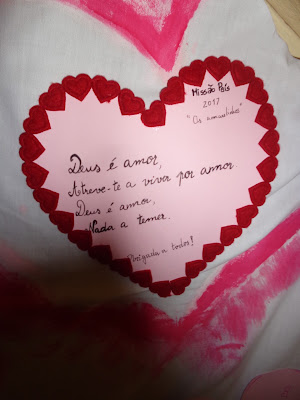 Missão País
2017
"Os
Deus é amor,
Atreve-te a viver por amor
Deus é amor,
Nada a temer.
Obrigada a todos!